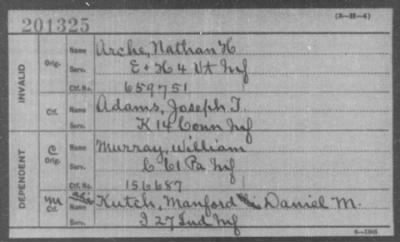 (3-H-4)
201325
INVALID
Orig.
Name Arche, Nathan H
Serv. E + H 4 Vt Inf
Ctf. No. 659751
Ctf.
Name Adams, Joseph T.
Serv. K 14 Conn Inf
DEPENDENT
C Orig.
Name Murray, William
Serv. C 61 Pa Inf
Ctf. No. 156687
M Ctf.
Name Kutch, Manford Daniel M.
Serv. I 27 Ind Inf